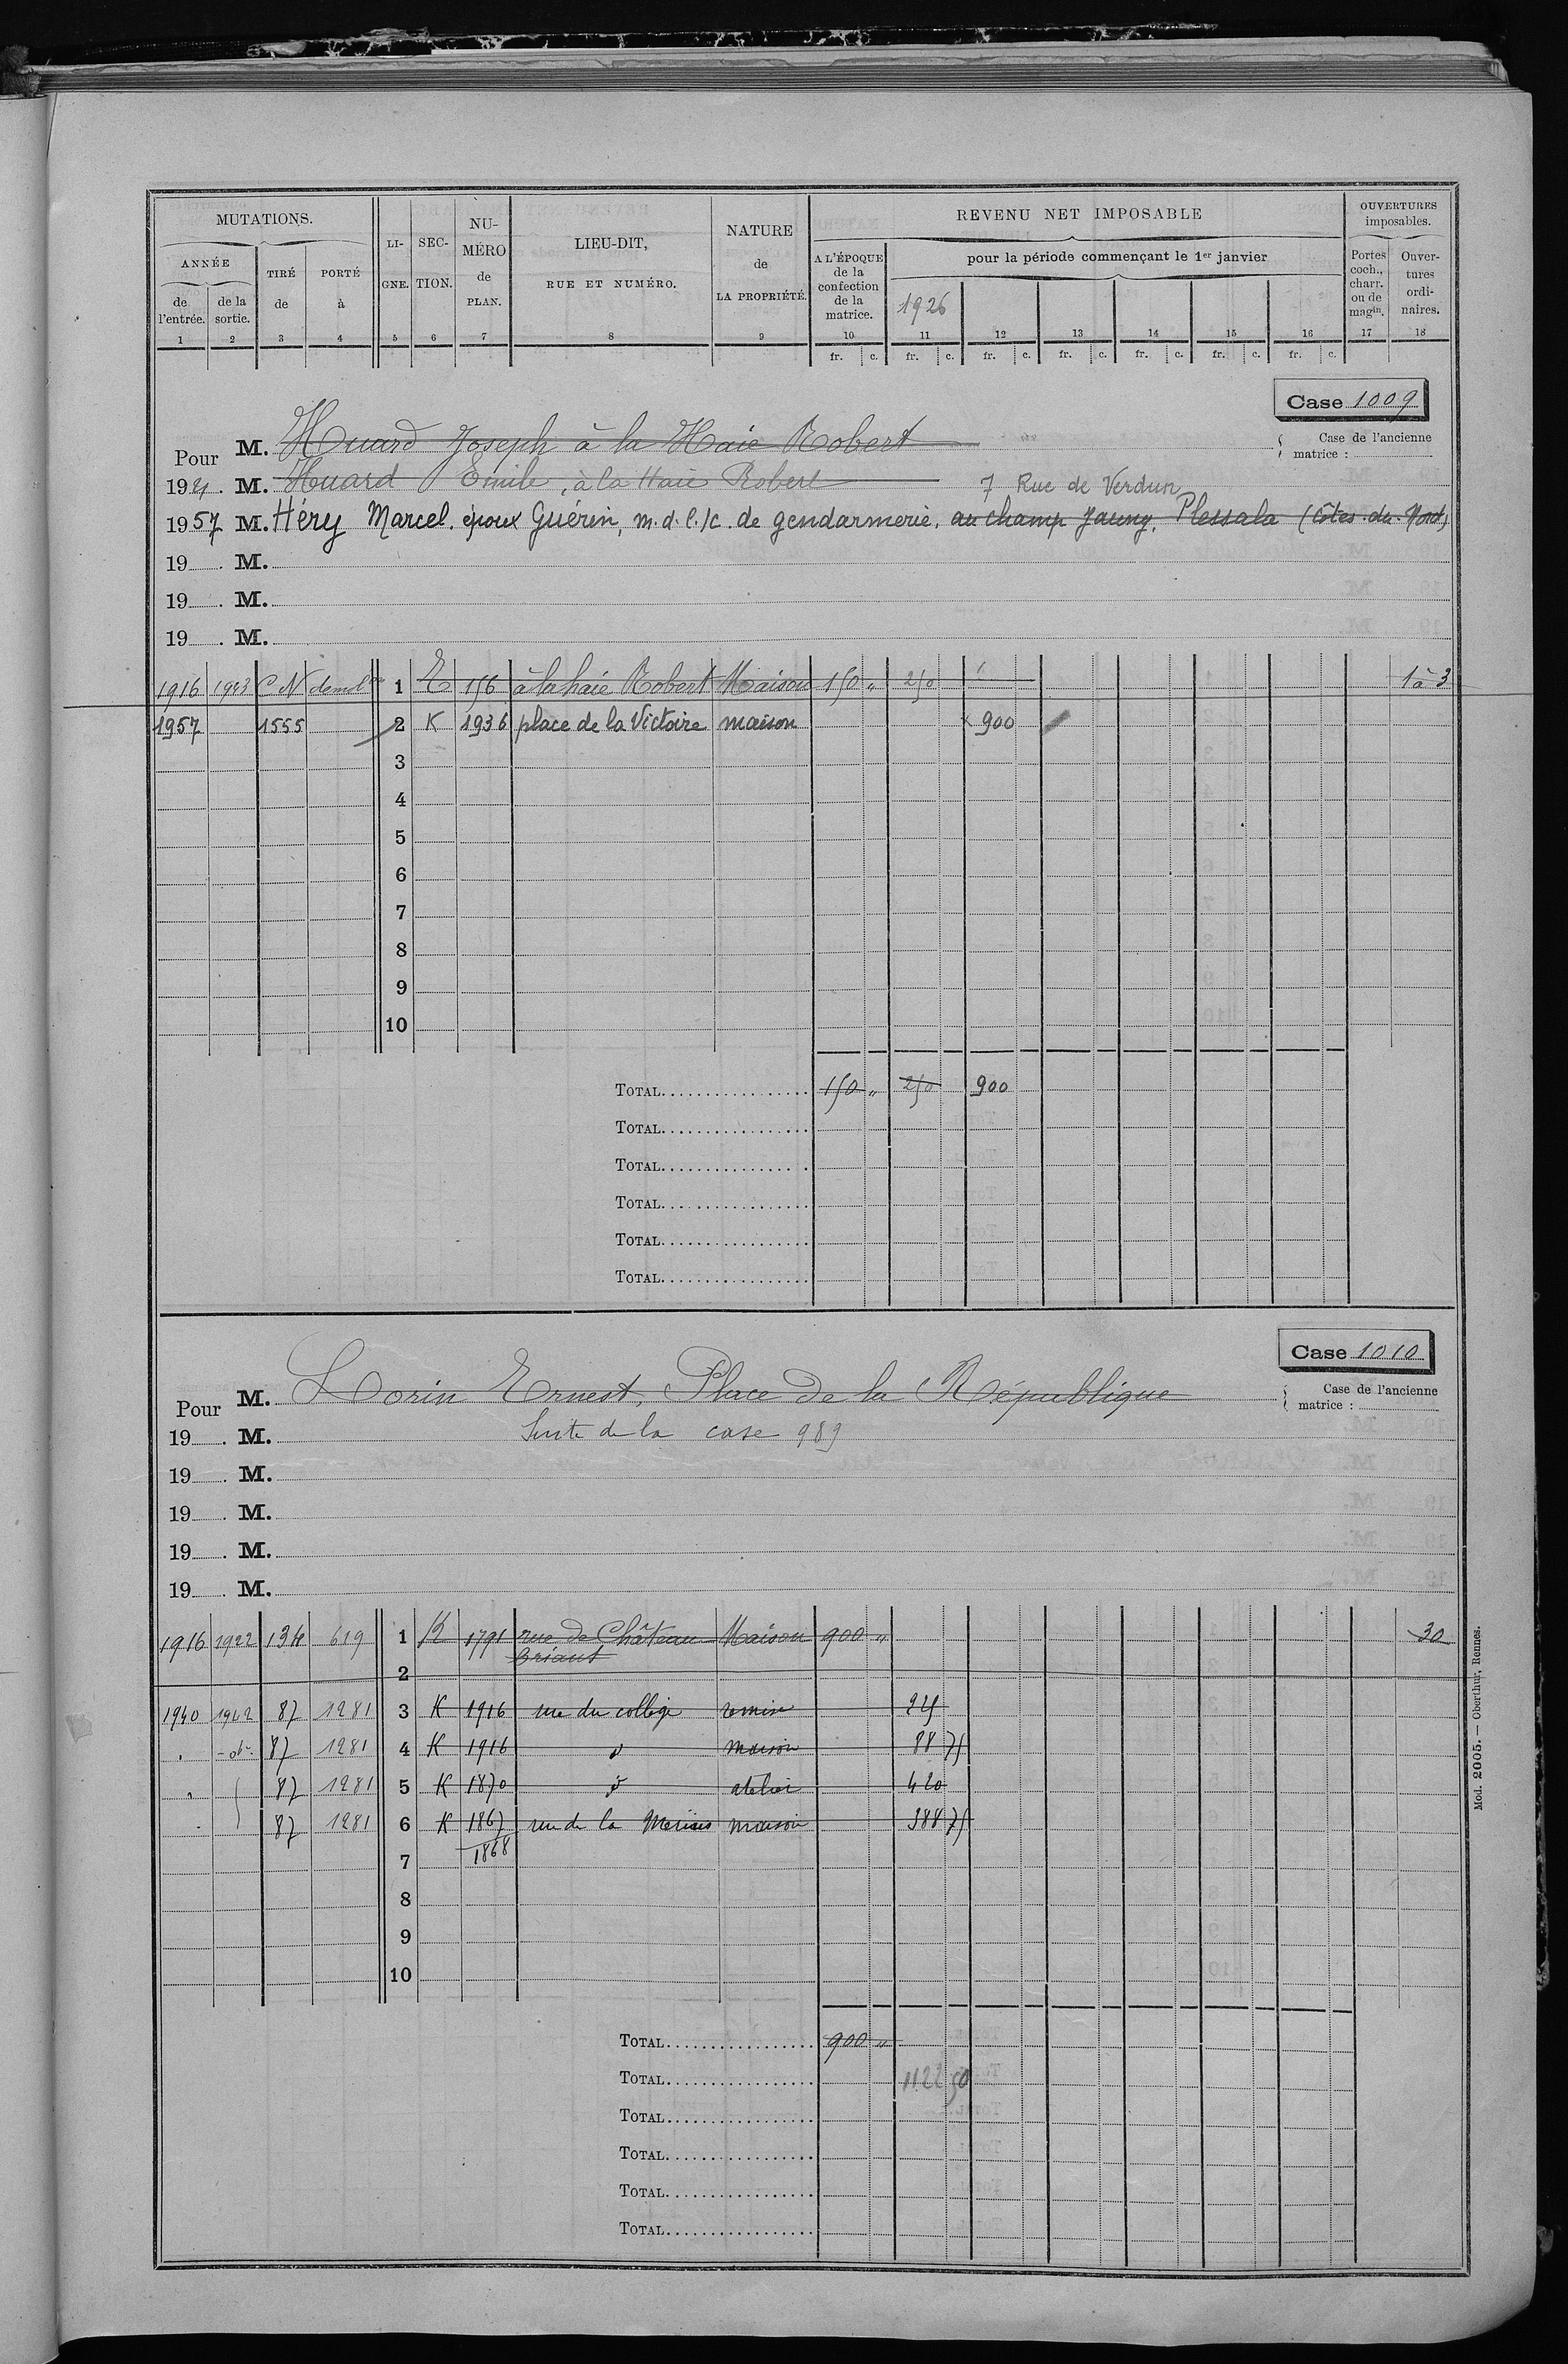 MUTATIONS.
ANNÉE
de l'entrée.
de la sortie.
TIRÉ de
PORTÉ à
LIGNE.
SECTION.
NUMÉRO de PLAN.
LIEU-DIT, RUE ET NUMÉRO.
NATURE de LA PROPRIÉTÉ.
REVENU NET IMPOSABLE
A L'ÉPOQUE de la confection de la matrice.
pour la période commençant le 1er janvier
1926
OUVERTURES imposables.
Portes coch., charr. ou de magin.
Ouvertures ordinaires.
1 2 3 4 5 6 7 8 9 10 11 12 13 14 15 16 17 18
fr. c. fr. c. fr. c. fr. c. fr. c. fr. c. fr. c.
Case 1009
Case de l'ancienne matrice :
Pour M. Huard Joseph à la Haie Robert
1921. M. Huard Emile, à la Haie Robert 7 Rue de Verdun
1957 M. Héry Marcel. époux Guérin, m.d.l./c. de gendarmerie, au champ Jauny. Plessala (Côtes-du-Nord)
19 . M.
19 . M.
19 . M.
1916 1923 C N 1 E 156 à la haie Robert Maison 150 " 250 1 à 3
1957 1555 2 K 1936 place de la Victoire maison x 900
3
4
5
6
7
8
9
10
TOTAL 150 " 250 900
TOTAL
TOTAL
TOTAL
TOTAL
TOTAL
Case 1010
Case de l'ancienne matrice :
Pour M. Lorin Ernest, Place de la République
19 . M. Suite de la case 989
19 . M.
19 . M.
19 . M.
19 . M.
1916 1922 134 619 1 K 1791 rue de Château Maison 900 " 30
briant
2
1940 1942 87 1281 3 K 1916 rue du collège remise 225
" -do- 87 1281 4 K 1916 d° maison 88 75
" 87 1281 5 K 1870 d° atelier 420
" 87 1281 6 K 1867 rue de la maison 388 75
1868
7
8
9
10
TOTAL 900 "
TOTAL 1122 50
TOTAL
TOTAL
TOTAL
TOTAL
Mod. 2005. — Oberthur, Rennes.